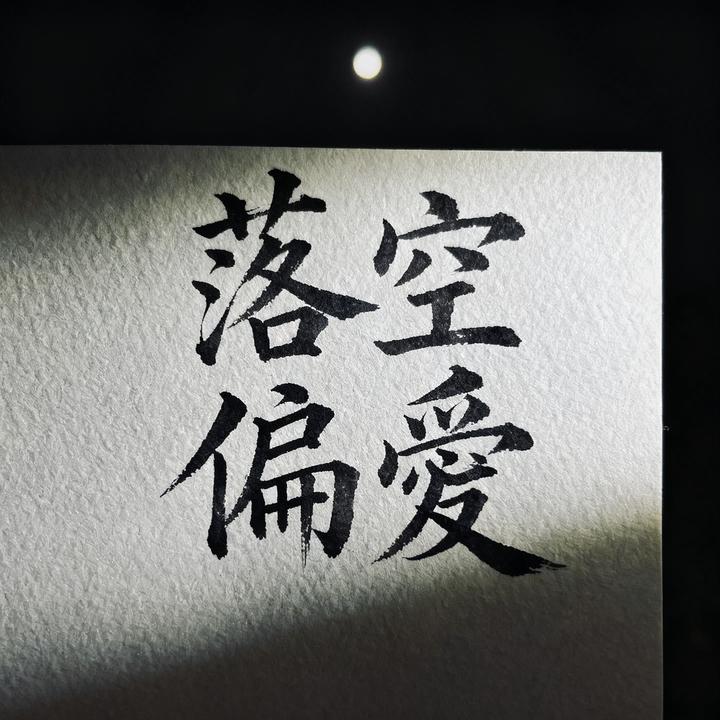 落空
偏愛